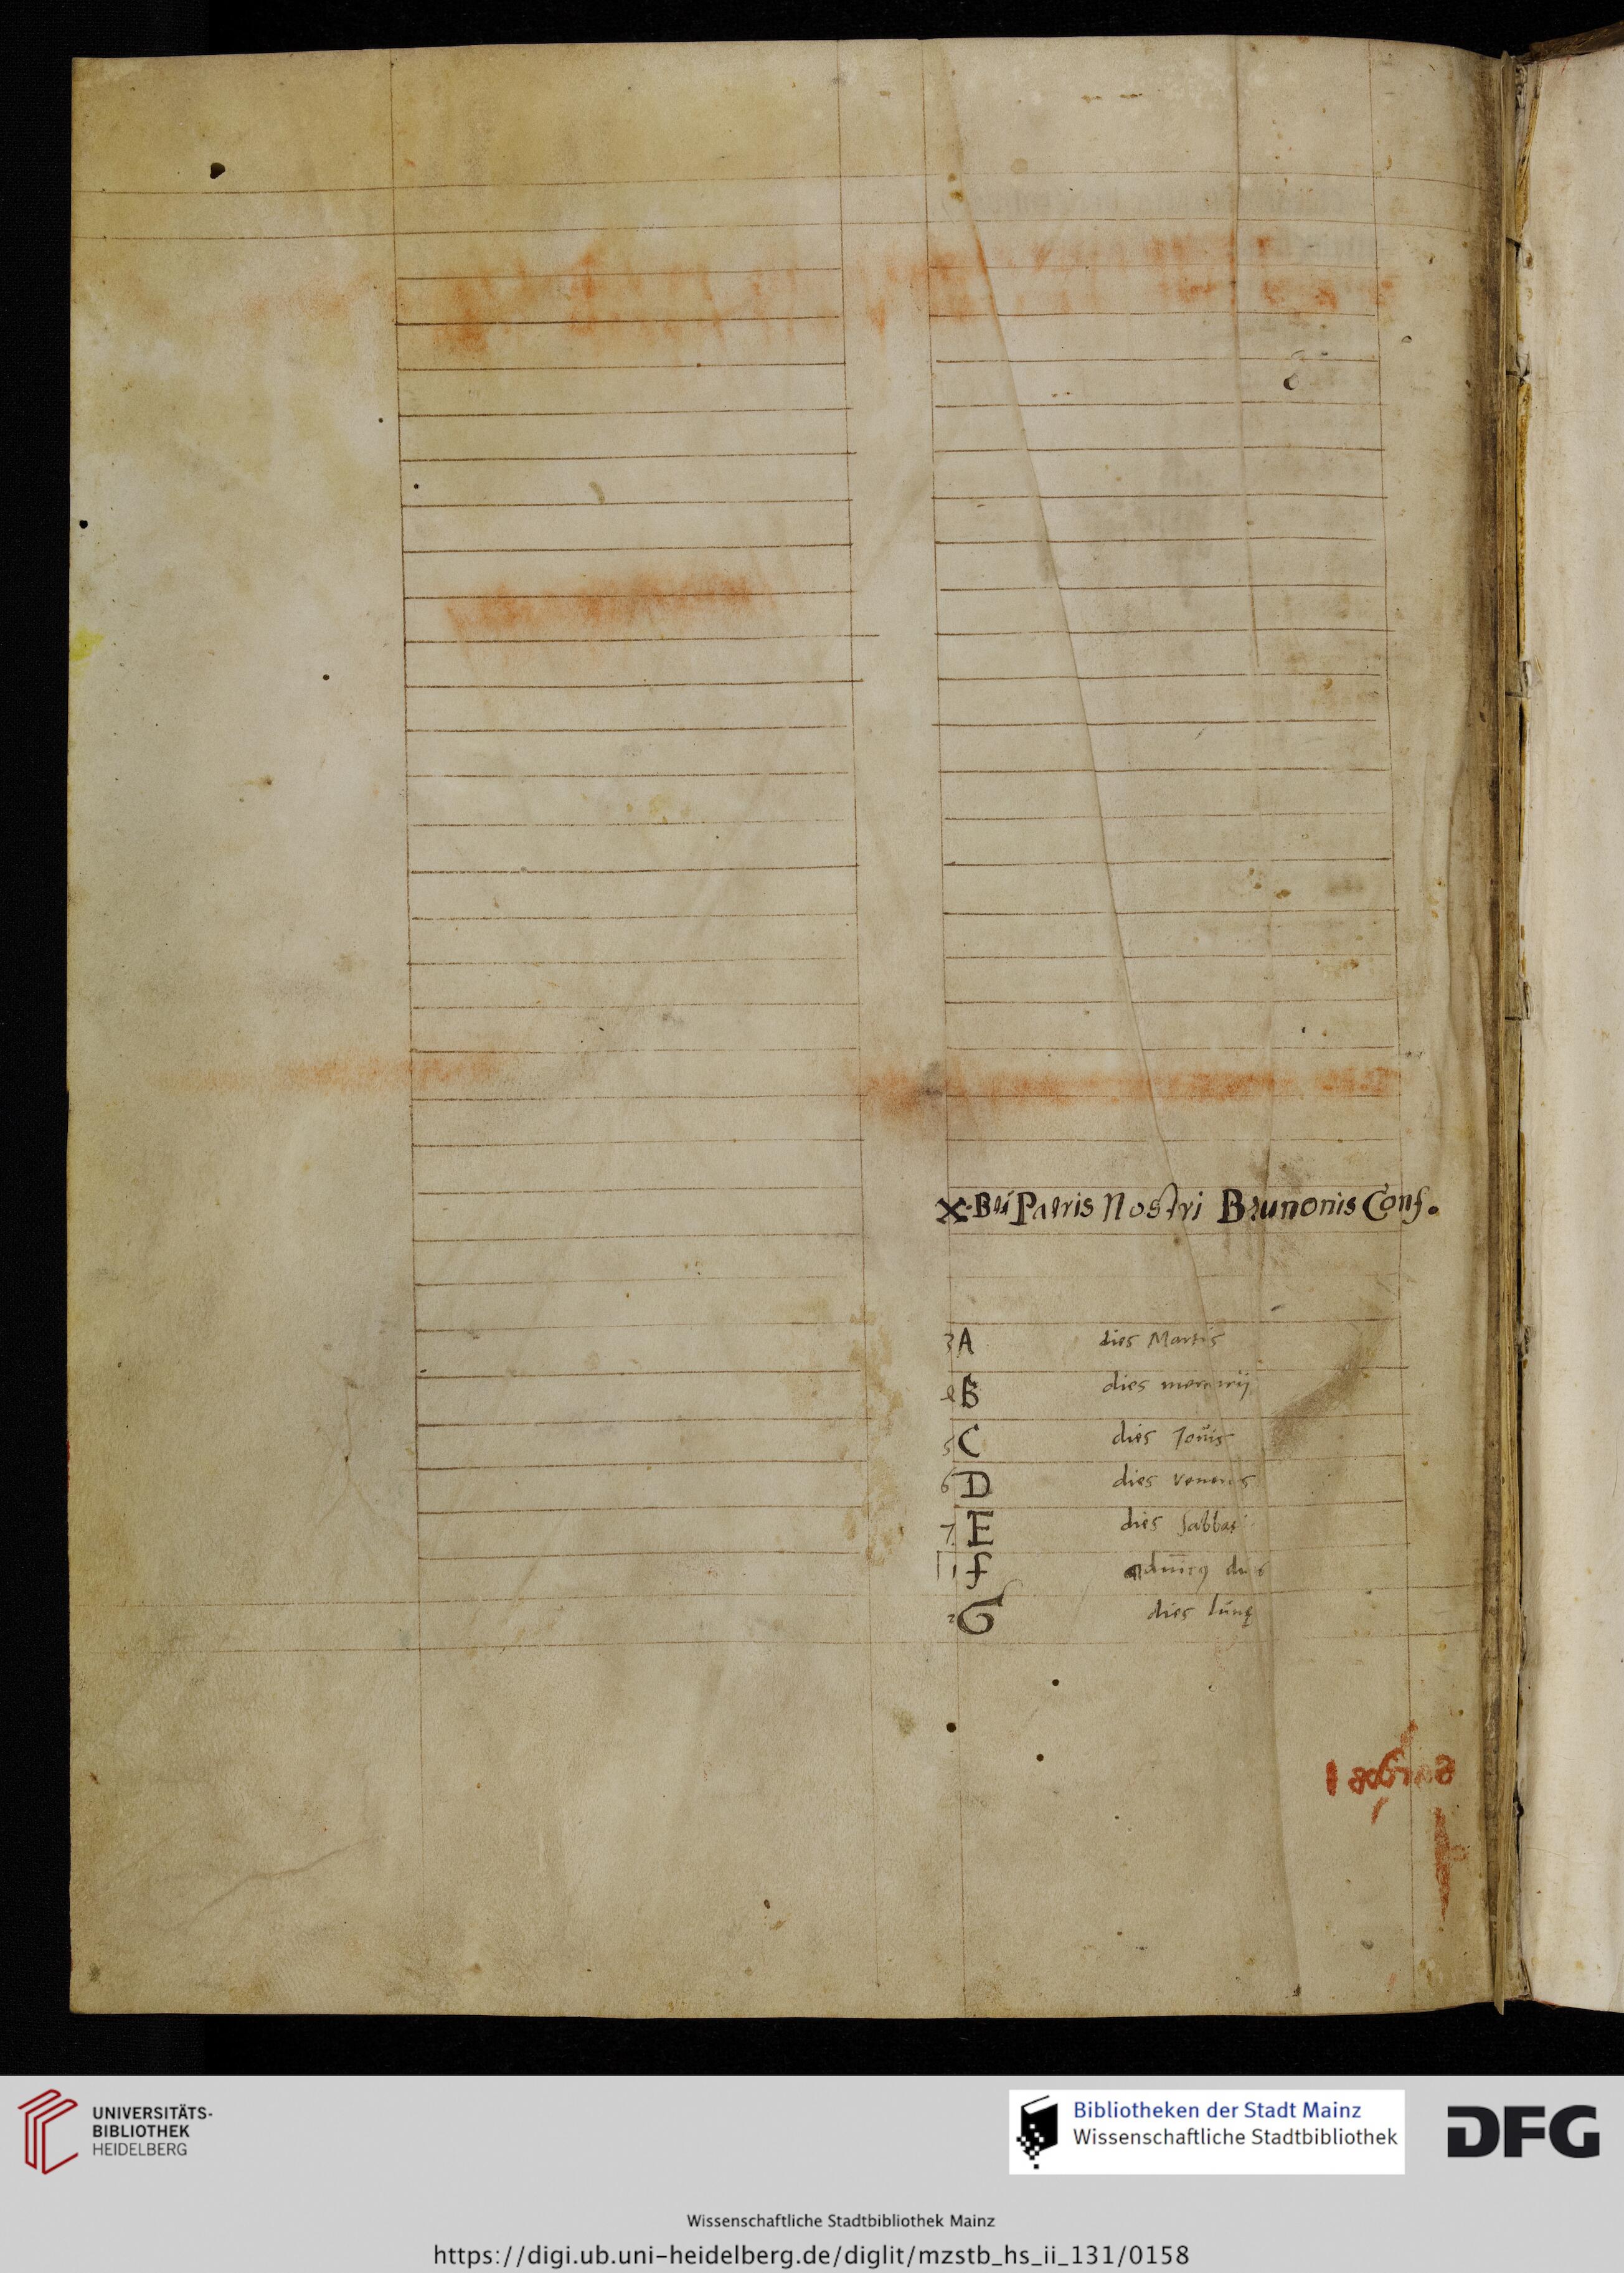 x. Bti Patris Nostri Brunonis Conf.
3 A dies Martis
B dies mercurij
5 C dies Jouis
6 D dies veneris
7 E dies Sabbati
1 f
2 G dies lunę
UNIVERSITÄTS-
BIBLIOTHEK
HEIDELBERG
Bibliotheken der Stadt Mainz
Wissenschaftliche Stadtbibliothek
DFG
Wissenschaftliche Stadtbibliothek Mainz
https://digi.ub.uni-heidelberg.de/diglit/mzstb_hs_ii_131/0158